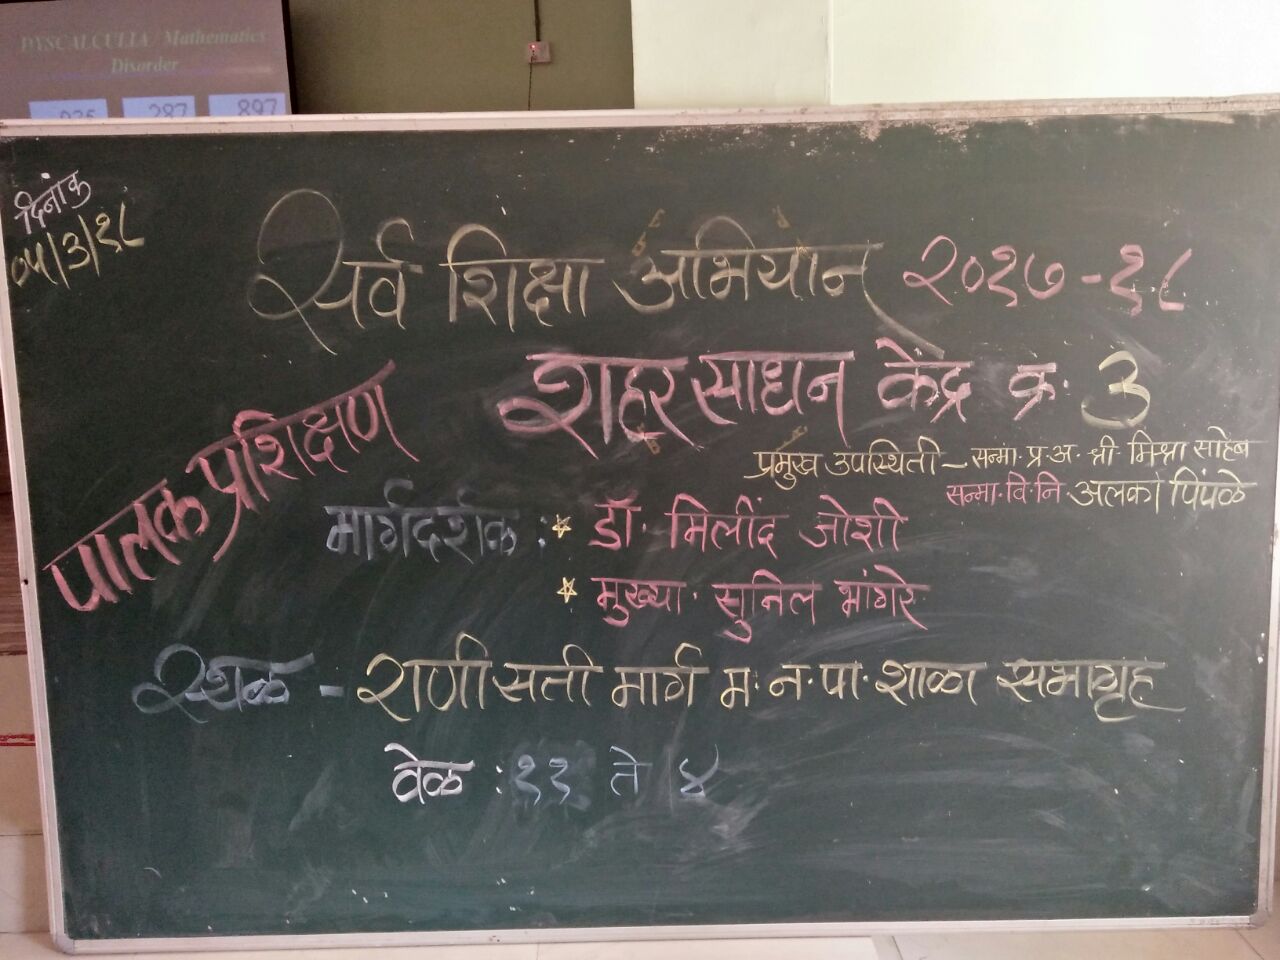 DYSCALCULIA / Mathematics
Disorder
287 897
दिनांक
०५/३/१८
सर्व शिक्षा अभियान २०१७-१८
शहर साधन केंद्र क्र. ३
पालक प्रशिक्षण
प्रमुख उपस्थिती – सन्मा. प्र. अ. श्री. मिश्रा साहेब
सन्मा. वि. नि अलका पिंपळे
मार्गदर्शक : * डॉ. मिलींद जोशी
* मुख्या. सुनिल भांगरे
स्थळ - राणी सती मार्ग म. न. पा. शाळा सभागृह
वेळ : ११ ते ४